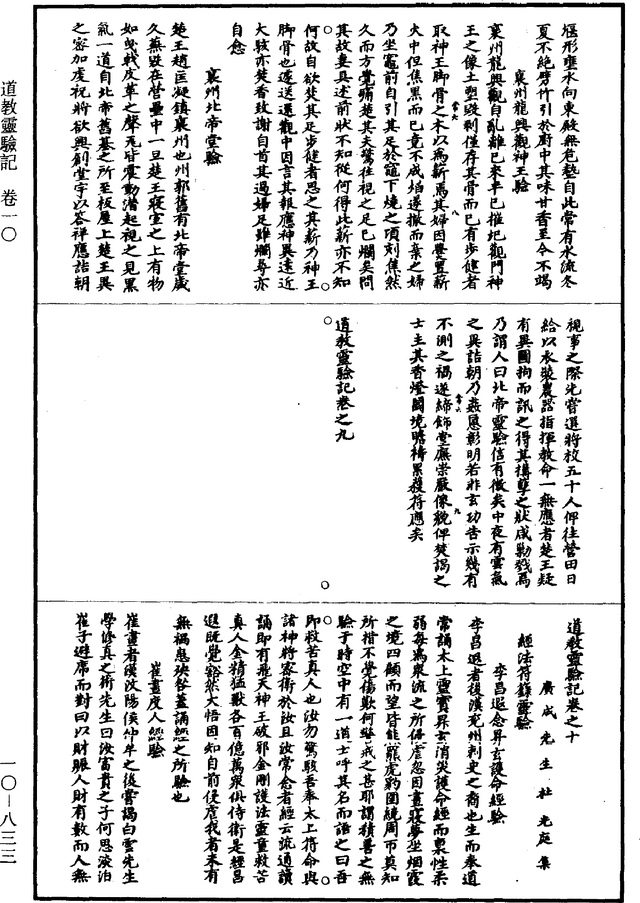 道教靈驗記 卷一〇
一〇—八三三
堰形壅水向東殿無苞塾自此常有水流冬
夏不絕劈竹引於廚中其味甘香至今不竭
襄州龍興觀神王驗
襄州龍興觀自亂離已來半已摧圯觀門神
王之像土塑毀剝僅存其骨而已有步健者
取神王脚骨之木以為薪焉其婦因㸑置薪
火中但焦黑而已竟不成焰遂撤而棄之婦
乃坐竈前自引其足於竈下燒之頃刻焦然
久而方覺痛楚其夫驚往視之足已爛矣問
其故妻具述前狀不知從何得此薪亦不知
何故自欲焚其足步健者思之其薪乃神王
脚骨也遽送還觀中因言其報應神異遠近
大駭亦焚香致謝自首其過婦足雖爛尋亦
自愈
襄州北帝堂驗
楚王趙匡凝鎮襄州也州郭舊有北帝堂歲
久蕪毀在營壘中一旦楚王寢室之上有物
如曳戟皮革之聲尨皆震動潛起視之見黑
氣一道自北帝舊基之所至板屋上楚王異
之密加虔祝將欲興創堂宇以荅祥應詰朝
視事之際先嘗選將校五十人俾往營田日
給以衣裝農器指揮教命一無應者楚王疑
有異圖拘而訊之得其搆孽之狀咸勦戮焉
乃謂人曰北帝靈驗信有徵矣中夜有雲氣
之異詰朝乃姦慝彰明若非玄功告示幾有
不測之禍遂締飾堂廡崇嚴像貌俾焚謁之
士主其香燈闔境瞻禱累獲符應矣
道教靈驗記卷之九
道教靈驗記卷之十
廣成先生杜光庭集
經法符籙靈驗
李昌遐念昇玄護命經驗
李昌遐者後漢兗州刺史之裔也生而奉道
常誦太上靈寶昇玄消災護命經而稟性柔
弱每為衆流之所侵虐忽因晝寢夢坐烟霞
之境四顧而望皆熊羆虎豹圍繞周帀莫知
所措不覺傷歎何警戒之甚耶謂積善之無
驗于時空中有一道士呼其名而語之曰吾
即救苦真人也汝勿驚駭吾奉太上符命與
諸神將密衛於汝且汝常念者經云流通讀
誦即有飛天神王破邪金剛護法靈童救苦
真人金精猛獸各百億萬衆俱侍衛是經昌
遐既覺豁然大悟因知自前侵虐我者未有
無禍患殃咎蓋誦經之所驗也
崔晝度人經驗
崔晝者漢汶陽侯仲牟之後嘗謁白雲先生
學修真之術先生曰汝富貴之子何思淡泊
崔子避席而對曰以財賑人財有數而人無